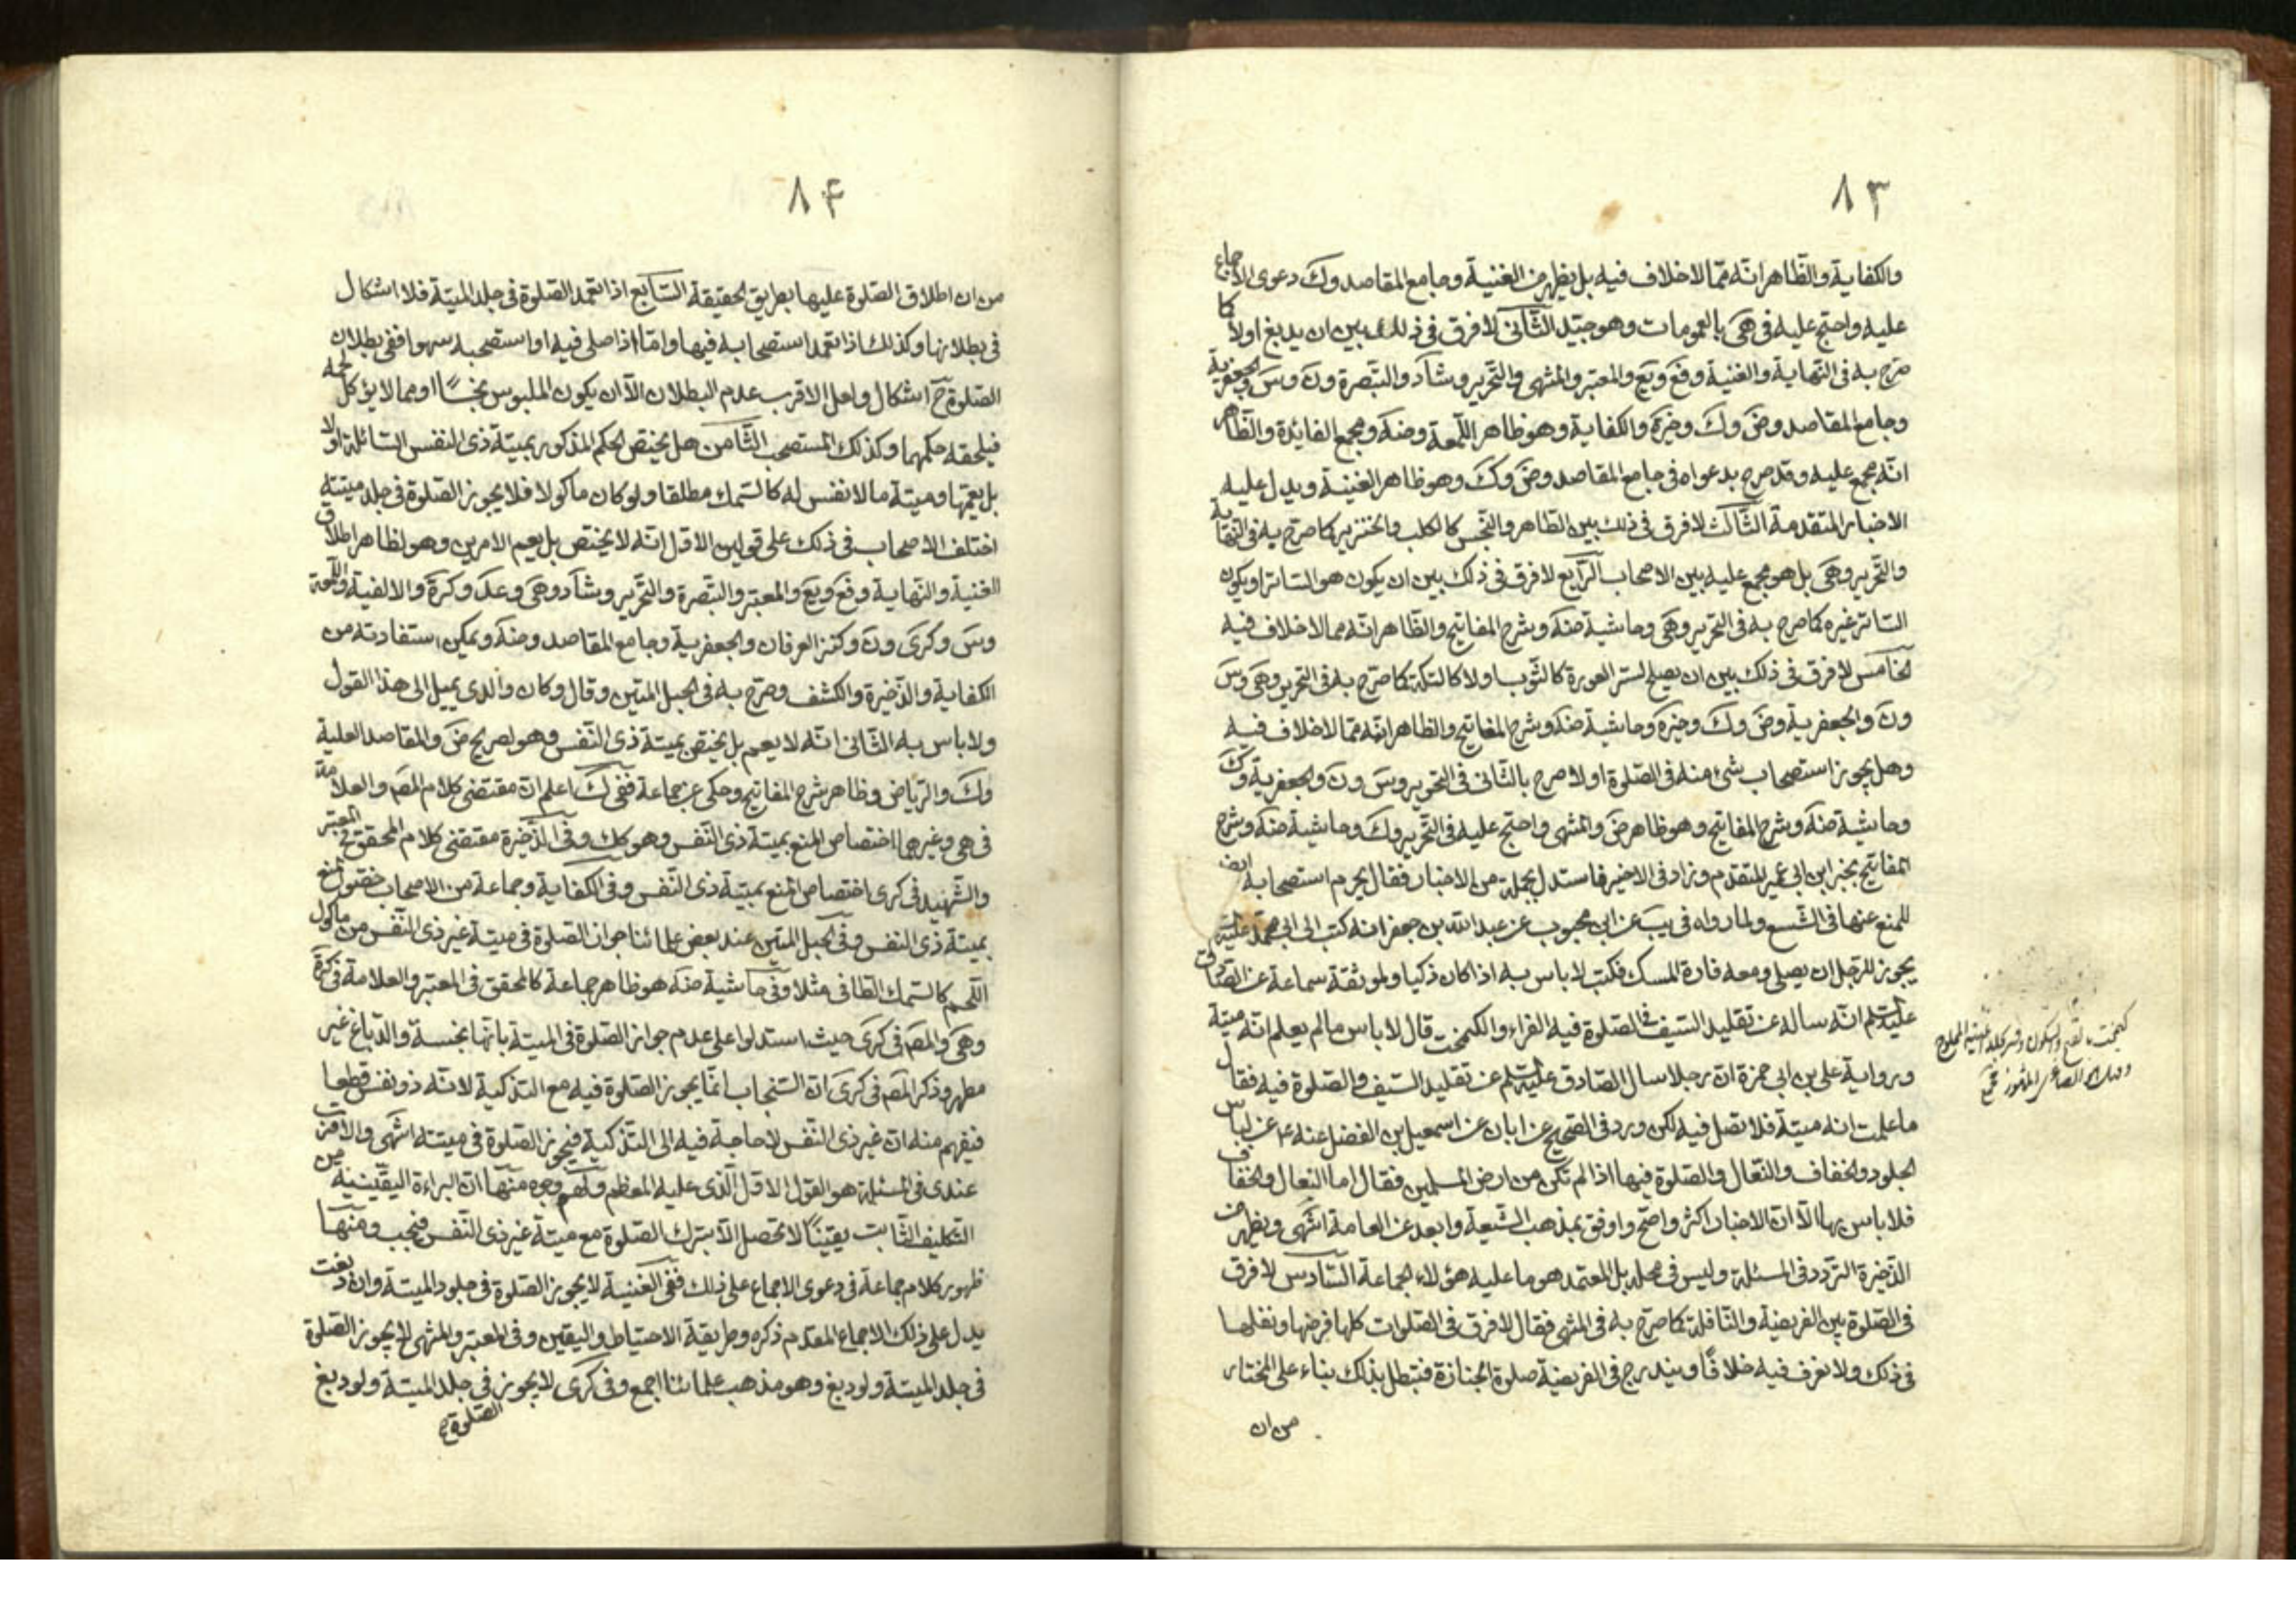 ٨٣
والكفاية والظاهر انّه ممّا لاخلاف فيه بل يظهر من الغنية وجامع المقاصد وك دعوى الاجماع
عليه واحتج عليه في هى بالعمومات وهو جيّد الثّانى لا فرق فى ذلك بين ان يدبغ اولا كما
صرّح به فى النهاية والغنية وفع ويع والمعتبر والمنتهى والتّحرير وشاد والتبصرة ون وس والجعفرية
وجامع المقاصد وض وك وخيرة والكفاية وهو ظاهر اللّمعة وضه ومجمع الفائدة والظّاهر
انّه مجمع عليه وقد صرح بدعواه فى جامع المقاصد وض وك وهو ظاهر الغنية ويدل عليه
الاخبار المتقدمة الثّالث لا فرق فى ذلك بين الطّاهر والنّجس كالكلب والخنزير كما صرّح به فى النّهاية
والتّحرير وهى بل هو مجمع عليه بين الاصحاب الرّابع لا فرق فى ذلك بين ان يكون هو الساتر او يكون
الساتر غيره كما صرح به فى التحرير وهى وحاشية ضه وشرح المفاتيح والظّاهر انّه مما لاخلاف فيه
الخامس لا فرق فى ذلك بين ان يصلح لستر العورة كالثّوب اولا كالتكّة كما صرّح به فى التحرير وهى وس
ون والجعفرية وض وك وخيره وحاشية ضه وشرح المفاتيح والظاهر انّه ممّا لاخلاف فيه
وهل يجوز استصحاب شئ منه فى الصّلوة اولا صرح بالثّانى فى التحرير وس ون والجعفرية وك
وحاشية ضه وشرح المفاتيح وهو ظاهر ض والمنتهى واحتج عليه فى التّحرير وك وحاشية ضه وشرح
المفاتيح بخبر ابن ابى عمير المتقدم وزاد فى الاخير فاستدل بجملة من الاخبار فقال يحرم استصحابه ايض
للمنع عنها فى الشّسع ولما رواه فى يب عن ابن محبوب عن عبد الله بن جعفر انه كتب الى ابى محمّد عليه
يجوز للرّجل ان يصلى ومعه فارة المسك فكتب لا باس به اذا كان ذكيا ولموثقة سماعة عن الصّادق
عليه السلم انّه ساله عن تقليد السّيف فى الصّلوة فيه الفراء والكيمخت قال لا باس ما لم يعلم انّه ميتة
ورواية على بن ابى حمزة ان رجلا سال الصّادق عليه السلم عن تقليد السّيف والصّلوة فيه فقال
ما علمت انه ميتة فلا تصل فيه لكن ورد فى الصّحيح عن ابان عن اسمعيل بن الفضل عنه ع عن لباس
الجلود والخفاف والنّعال والصّلوة فيها اذا لم تكن من ارض المسلمين فقال اما النعال والخفاف
فلا باس بها الّا ان الاخبار اكثر واصح واوفق بمذهب الشّيعة وابعد عن العامة انتهى ويظهر من
الذّخيرة التردد فى المسئلة وليس فى محله بل المعتمد هو ما عليه هؤلاء الجماعة السّادس لا فرق
فى الصّلوة بين الفريضة والنّافلة كما صرّح به فى المنتهى فقال لا فرق فى الصّلوات كلها فرضها ونفلها
فى ذلك ولا نعرف فيه خلافًا ويندرج فى الفريضة صلوة الجنازة فتبطل بذلك بناء على المختار
من ان
كيمخت بالفتح والسكون
٨۴
من ان اطلاق الصّلوة عليها بطريق الحقيقة السّابع اذا تعمّد الصّلوة فى جلد الميتة فلا اشكال
فى بطلانها وكذلك اذا تعمّد استصحابه فيها وامّا اذا صلى فيه او استصحبه سهوا ففى بطلان
الصّلوة ح اشكال ولعل الاقرب عدم البطلان الّا ان يكون الملبوس نجسًا او مما لا يؤكل لحمه
فيلحقه حكمهما وكذلك المستصحب الثّامن هل يختص الحكم المذكور بميتة ذى النفس السّائلة او لا
بل يعمّها وميتة ما لا نفس له كالسّمك مطلقا ولو كان ماكولا فلا يجوز الصّلوة فى جلد ميتته
اختلف الاصحاب فى ذلك على قولين الاوّل انّه لا يختص بل يعم الامرين وهو لظاهر اطلاق
الغنية والنهاية وفع ويع والمعتبر والتبصرة والتّحرير وشاد وهى وعد وكرة والالفية واللّمعة
وس وكرى ون وكنز العرفان والجعفرية وجامع المقاصد وضه ويمكن استفادته من
الكفاية والذّخيرة والكشف وصرّح به فى الحبل المتين وقال وكان والدى يميل الى هذا القول
ولا باس به الثّانى انّه لا يعم بل يختص بميتة ذى النّفس وهو لصريح ض والمقاصد العلية
وك والرّياض وظاهر شرح المفاتيح وحكى عن جماعة ففى ك اعلم ان مقتضى كلام المصّ والعلّامة
فى هى وغيرهما اختصاص المنع بميتة ذى النّفس وهو كك وفى الذّخيرة مقتضى كلام المحقق فى المعتبر
والشّهيد فى كرى اختصاص المنع بميتة ذى النّفس وفى الكفاية وجماعة من الاصحاب خصّوا المنع
بميتة ذى النفس وفى الحبل المتين عند بعض علمائنا جواز الصّلوة فى ميتة غير ذى النّفس من ماكول
اللّحم كالسّمك الطافى مثلا وفى حاشية ضه هو ظاهر جماعة كالمحقق فى المعتبر والعلامة فى كرة
وهى والمصّ فى كرى حيث استدلوا على عدم جواز الصّلوة فى الميتة بانّها نجسة والدّباغ غير
مطهر وذكر المصّ فى كرى ان السّنجاب انّما يجوز الصّلوة فيه مع التذكية لانّه ذو نفس قطعا
فيفهم منه ان غير ذى النّفس لا حاجة فيه الى التّذكية فيجوز الصّلوة فى ميتته انتهى والاقرب
عندى فى المسئلة هو القول الاوّل الّذى عليه المعظم ولهم وجوه منها ان البراءة اليقينية من
التكليف الثّابت يقينًا لا تحصل الّا بترك الصّلوة مع ميتة غير ذى النّفس فيجب ومنها
ظهور كلام جماعة فى دعوى الاجماع على ذلك ففى الغنية لا يجوز الصّلوة فى جلود الميتة وان دبغت
يدل على ذلك الاجماع المقدم ذكره وطريقة الاحتياط واليقين وفى المعتبر والمنتهى لا يجوز الصّلوة
فى جلد الميتة ولو دبغ وهو مذهب علمائنا اجمع وفى كرى لا يجوز فى جلد الميتة ولو دبغ
الصّلوة